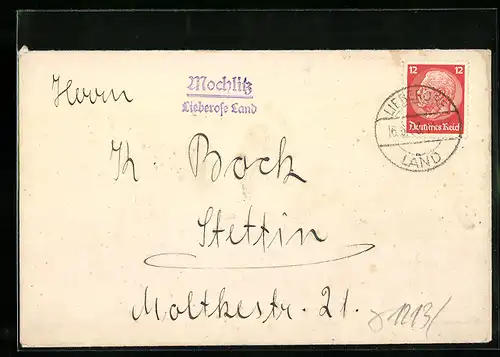 Mochlitz
Lieberose Land
12 12
Deutsches Reich
LIEBEROSE
16.
LAND
Herrn
Th. Bock
Stettin
Moltkestr. 21.
1213/